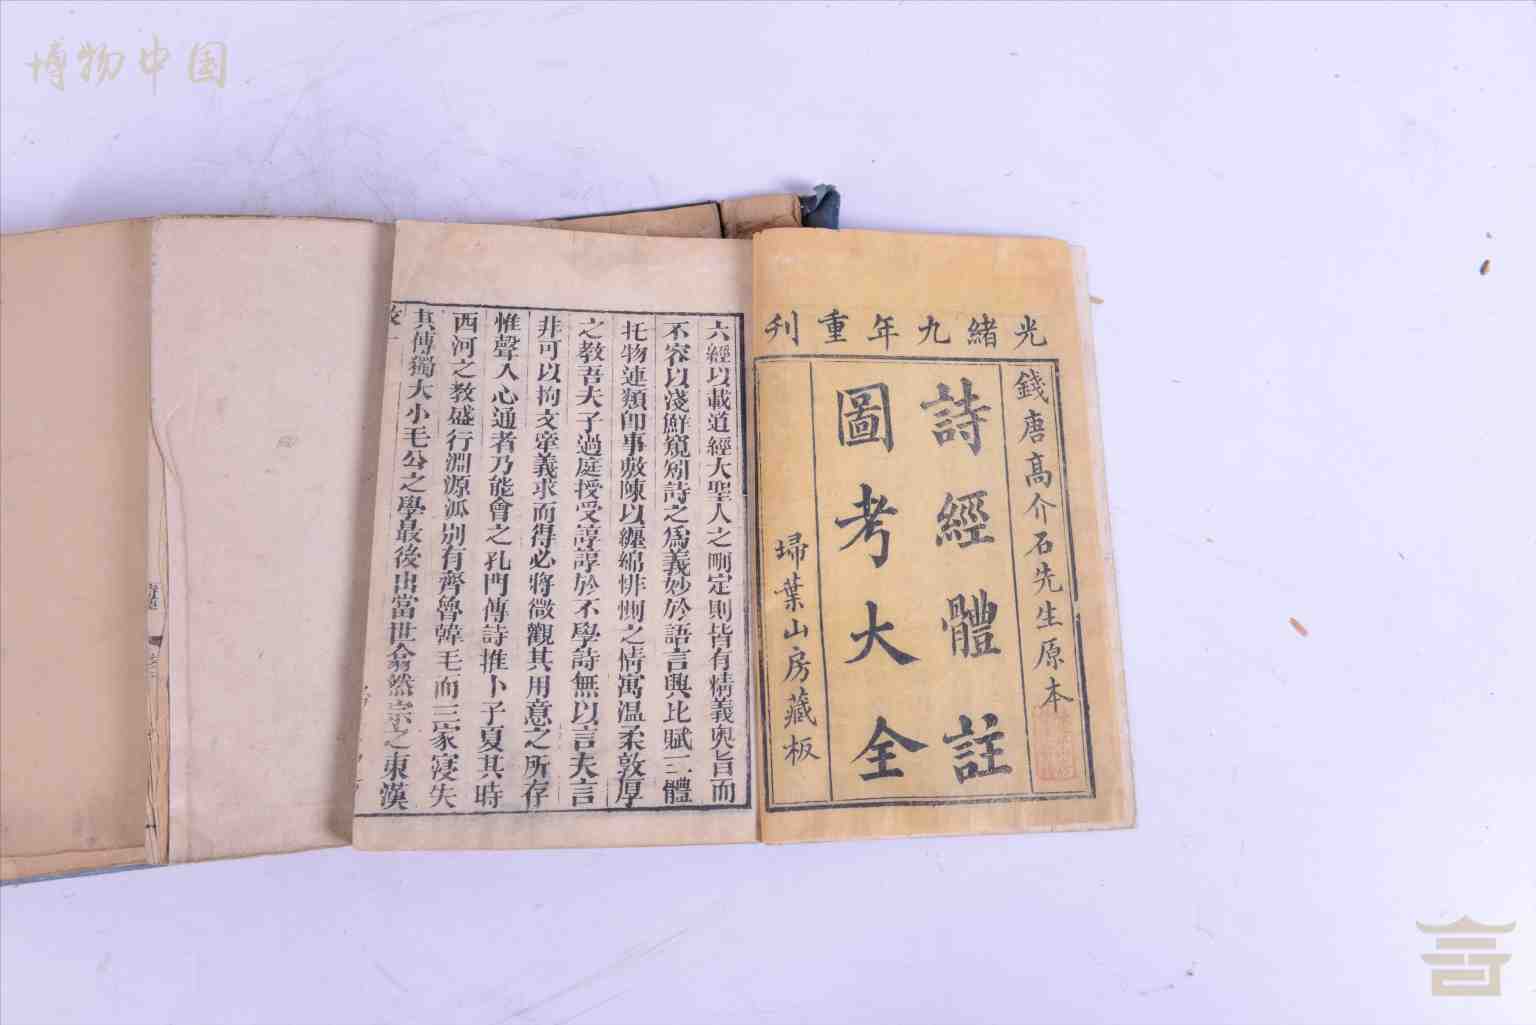 博物中国
光緒九年重刊
錢唐高介石先生原本
詩經體註
圖考大全
埽葉山房藏板
六經以載道經大聖人之刪定則皆有精義奧旨而
不容以淺鮮窺矧詩之為義妙於語言與比賦三體
托物連類卽事敷陳以纏綿悱惻之情寓溫柔敦厚
之敎吾夫子過庭授受諄諄於不學詩無以言夫言
非可以拘文牽義求而得必將微觀其用意之所存
惟聲入心通者乃能會之孔門傳詩推卜子夏其時
西河之敎盛行淵源派別有齊魯韓毛而三家寖失
其傳獨大小毛公之學最後出當世翕然宗之東漢